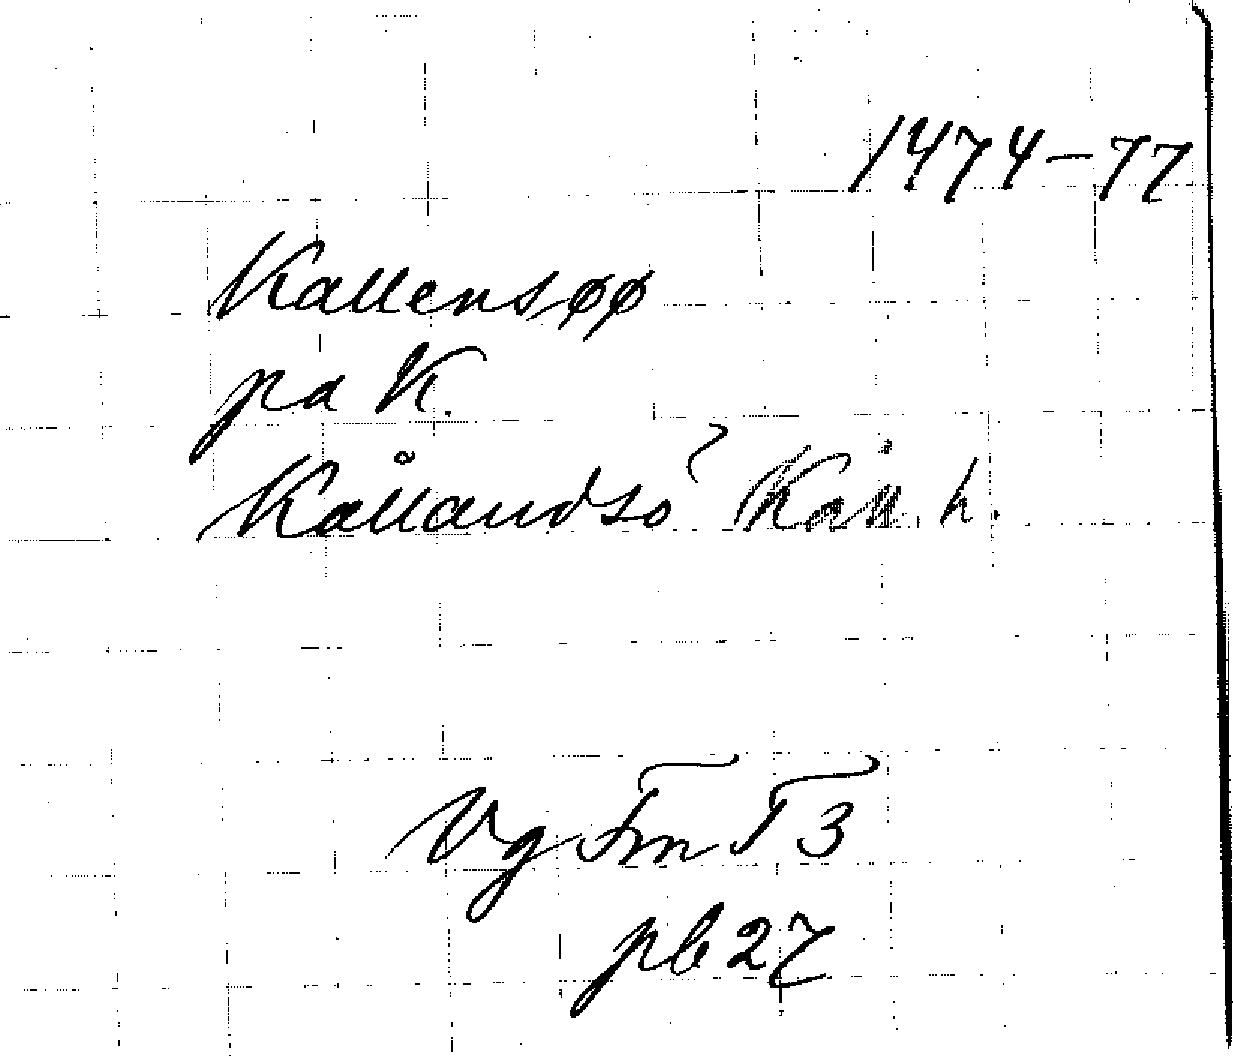 1474-77
Kallensøø
pa K.
Kållandsö Kåll. h.
Vg Fm T 3
pb 27